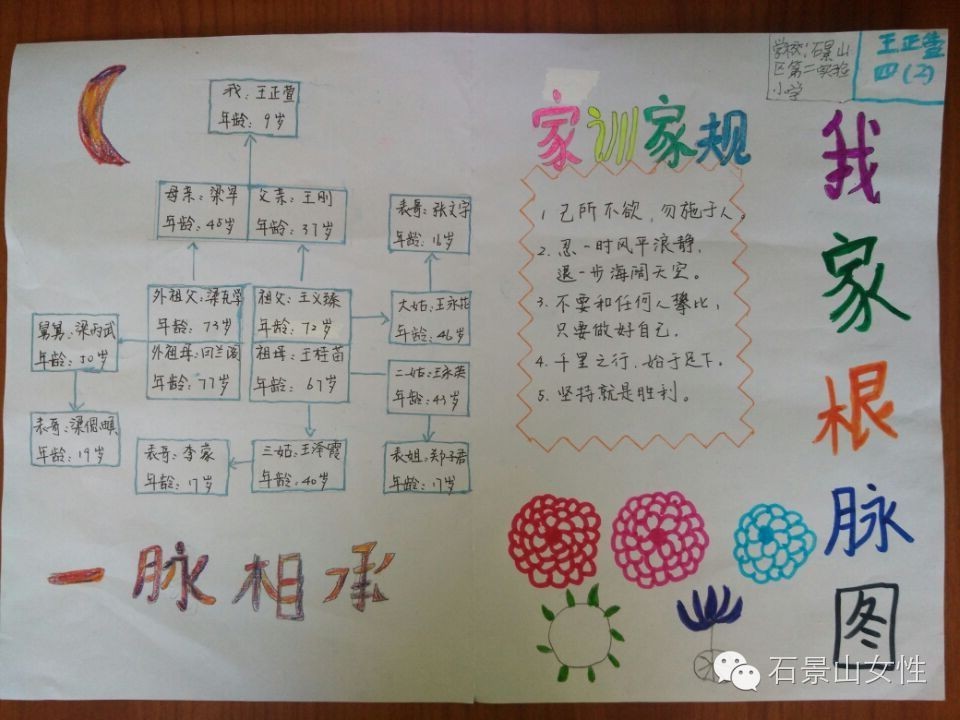 学校:石景山
区第二实验
小学
王正萱
四(2)
我家根脉图
家训家规
1. 己所不欲,勿施于人。
2. 忍一时风平浪静,
退一步海阔天空。
3. 不要和任何人攀比,
只要做好自己.
4. 千里之行,始于足下。
5. 坚持就是胜利。
我:王正萱
年龄:9岁
母亲:梁军
年龄:45岁
父亲:王刚
年龄:37岁
表哥:张文宇
年龄:16岁
外祖父:梁克学
年龄:73岁
外祖母:
年龄:77岁
祖父:王义臻
年龄:72岁
祖母:王桂苗
年龄:67岁
大姑:王永花
年龄:46岁
二姑:王永英
年龄:43岁
舅舅:梁丙武
年龄:50岁
表哥:梁
年龄:19岁
表哥:李蒙
年龄:17岁
三姑:王泽霞
年龄:40岁
表姐:郑子君
年龄:17岁
一脉相承
石景山女性